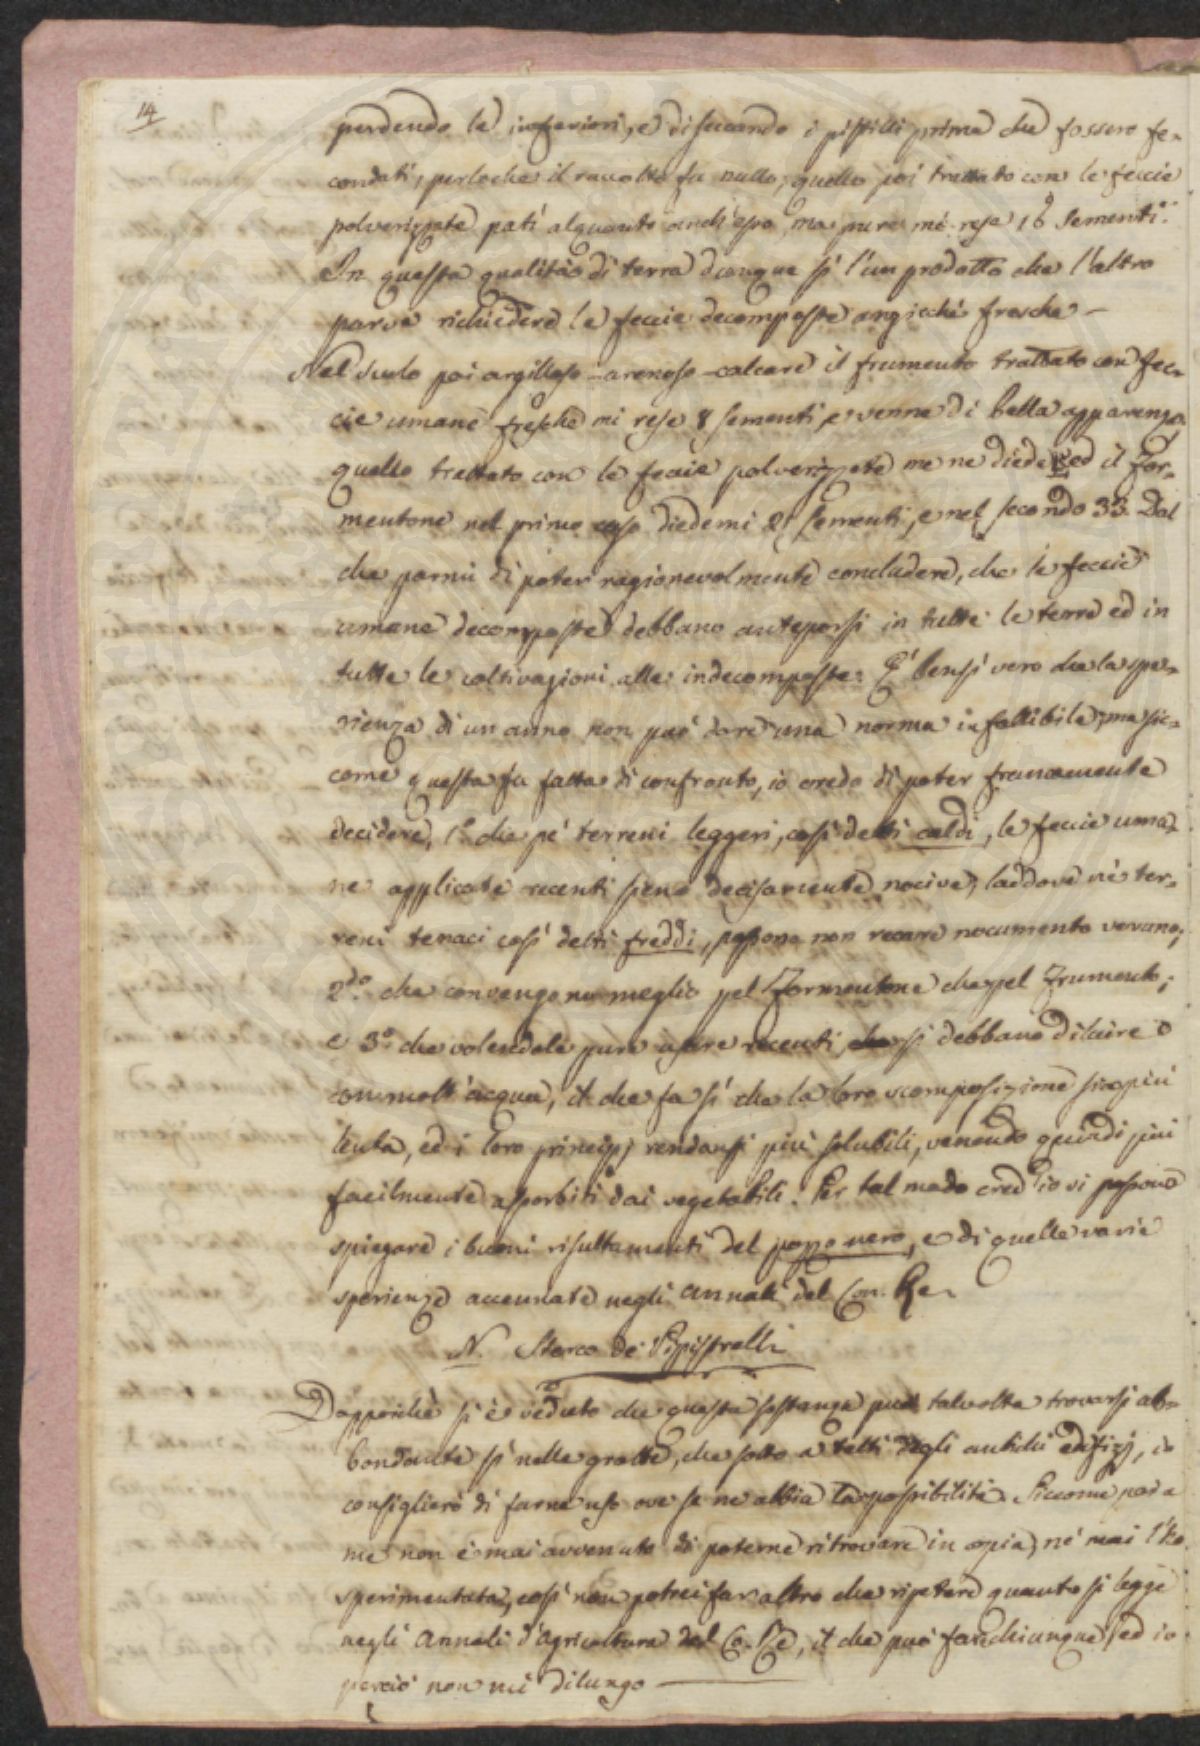 14
perdendo le inferiori, e diseccando i pistilli prima che fossero fe-
condati, perloche il raccolto fu nullo, quello poi trattato con le feccie
polverizzate patì alquanto anch'esso, ma pure mi rese 16 sementi.
In questa qualità di terra dunque sì l'un prodotto che l'altro
parve richiedere le feccie decomposte anzicchè fresche —
Nel suolo poi argilloso-arenoso-calcare il frumento trattato con fec-
cie umane fresche mi rese 8 sementi, e venne di bella apparenza,
quello trattato con le feccie polverizzate me ne diede ed il for-
mentone nel primo caso diedemi 21 sementi, e nel secondo 33. Dal
che parmi di poter ragionevolmente concludere, che le feccie
umane decomposte debbano anteporsi in tutte le terre ed in
tutte le coltivazioni alle indecomposte. E' bensì vero che la spe-
rienza di un anno non può dare una norma infallibile, ma sic-
come questa fu fatta di confronto, io credo di poter francamente
decidere, 1.º che pe' terreni leggeri, così detti caldi, le feccie uma-
ne applicate recenti sieno decisamente nocive, laddove ne' ter-
reni tenaci così detti freddi, possono non recare nocumento veruno;
2.do che convengono meglio pel Formentone che pel Frumento;
e 3.º che volendole pure usare recenti, che si debbano diluire
con molt'acqua, il che fa sì che la loro scomposizione sia più
lenta, ed i loro principj rendansi più solubili, venendo quindi più
facilmente assorbiti dai vegetabili. Per tal modo cred'io si possono
spiegare i buoni risultamenti del pozzo nero, e di quelle varie
sperienze accennate negli annali del Con. Re.
N. Sterco de' Pipistrelli
Dappoichè si è veduto che questa sostanza può talvolta trovarsi ab-
bondante sì nelle grotte, che sotto a' tetti degli antichi edifizj, io
consiglierò di farne uso ove se ne abbia la possibilità. Siccome però a
me non è mai avvenuto di poterne ritrovare in copia, nè mai l'ho
sperimentata, così non potrei far altro che ripetere quanto si legge
negli Annali d'agricoltura del Co. Re, il che può far chiunque, ed io
perciò non mi dilungo —